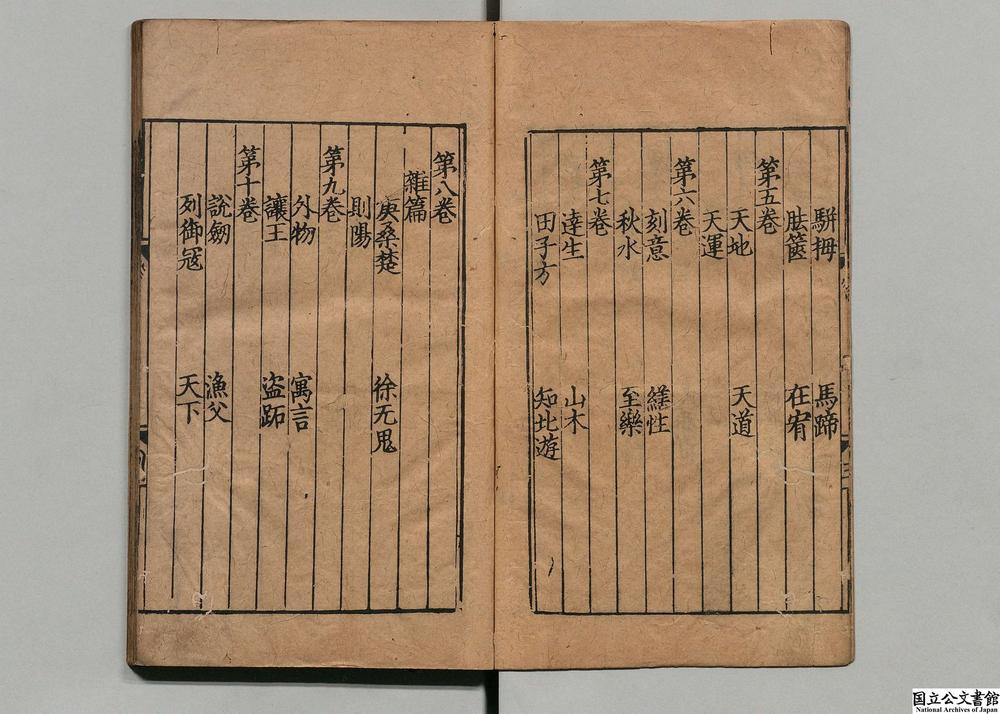 駢拇 馬蹄
胠篋 在宥
第五卷
天地 天道
天運
第六卷
刻意 繕性
秋水 至樂
第七卷
達生 山木
田子方 知北遊
第八卷
雜篇
庚桑楚 徐无鬼
則陽
第九卷
外物 寓言
讓王 盜跖
第十卷
說劒 漁父
列御寇 天下
国立公文書館
National Archives of Japan